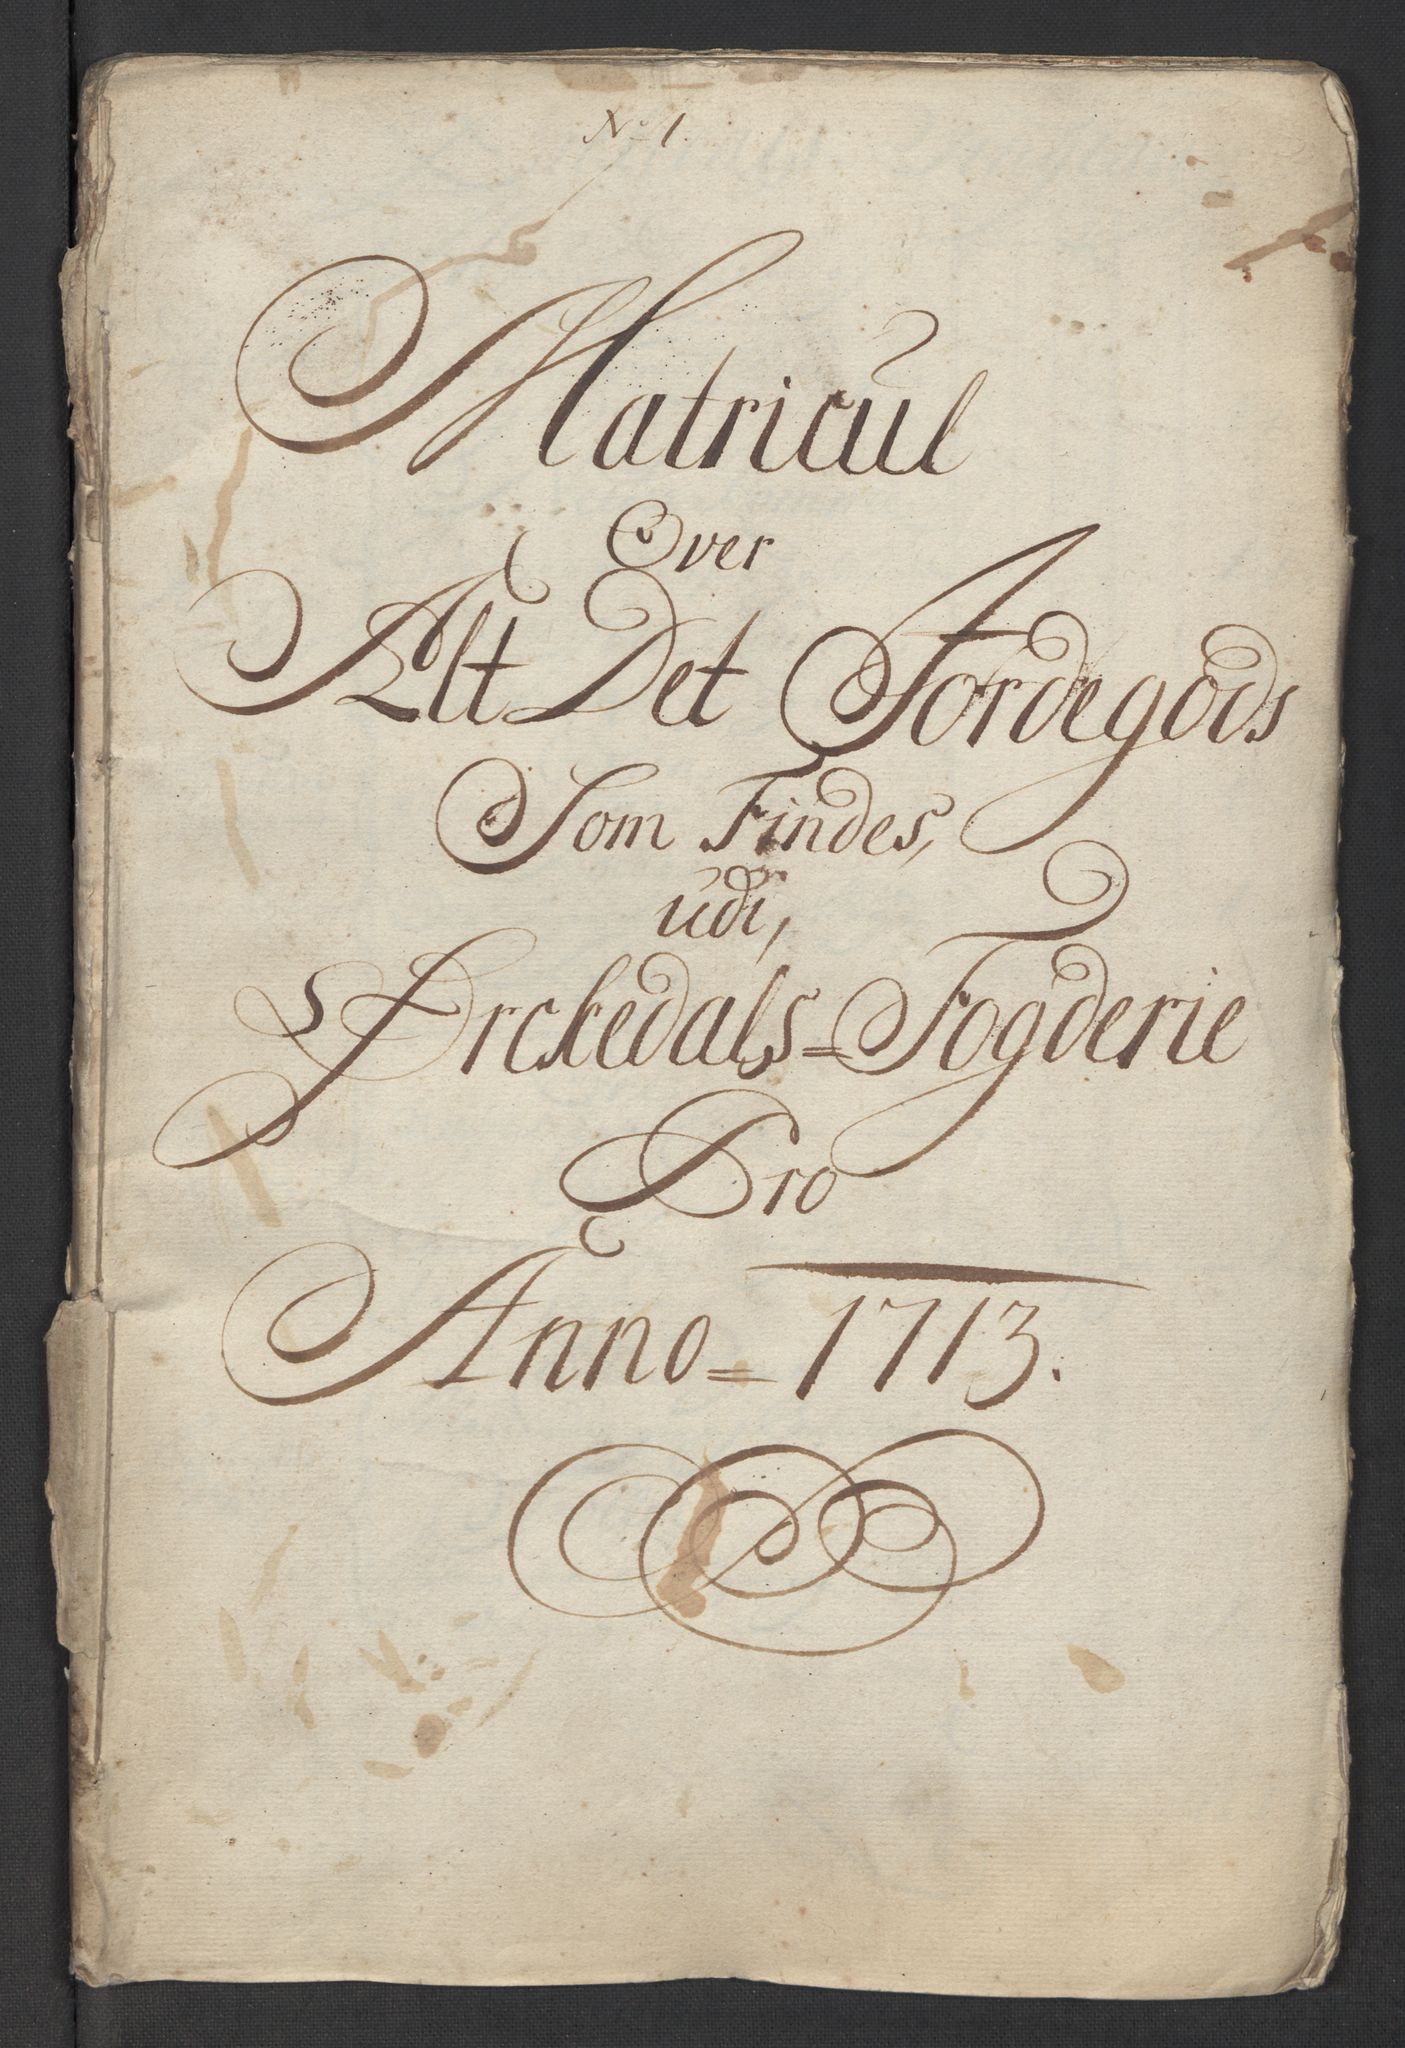 No 1.
Matricul
Over
Alt Det Jordegods
Som Findes,
udi,
Ørckedals=Fogderie
Pro
Anno=1713.